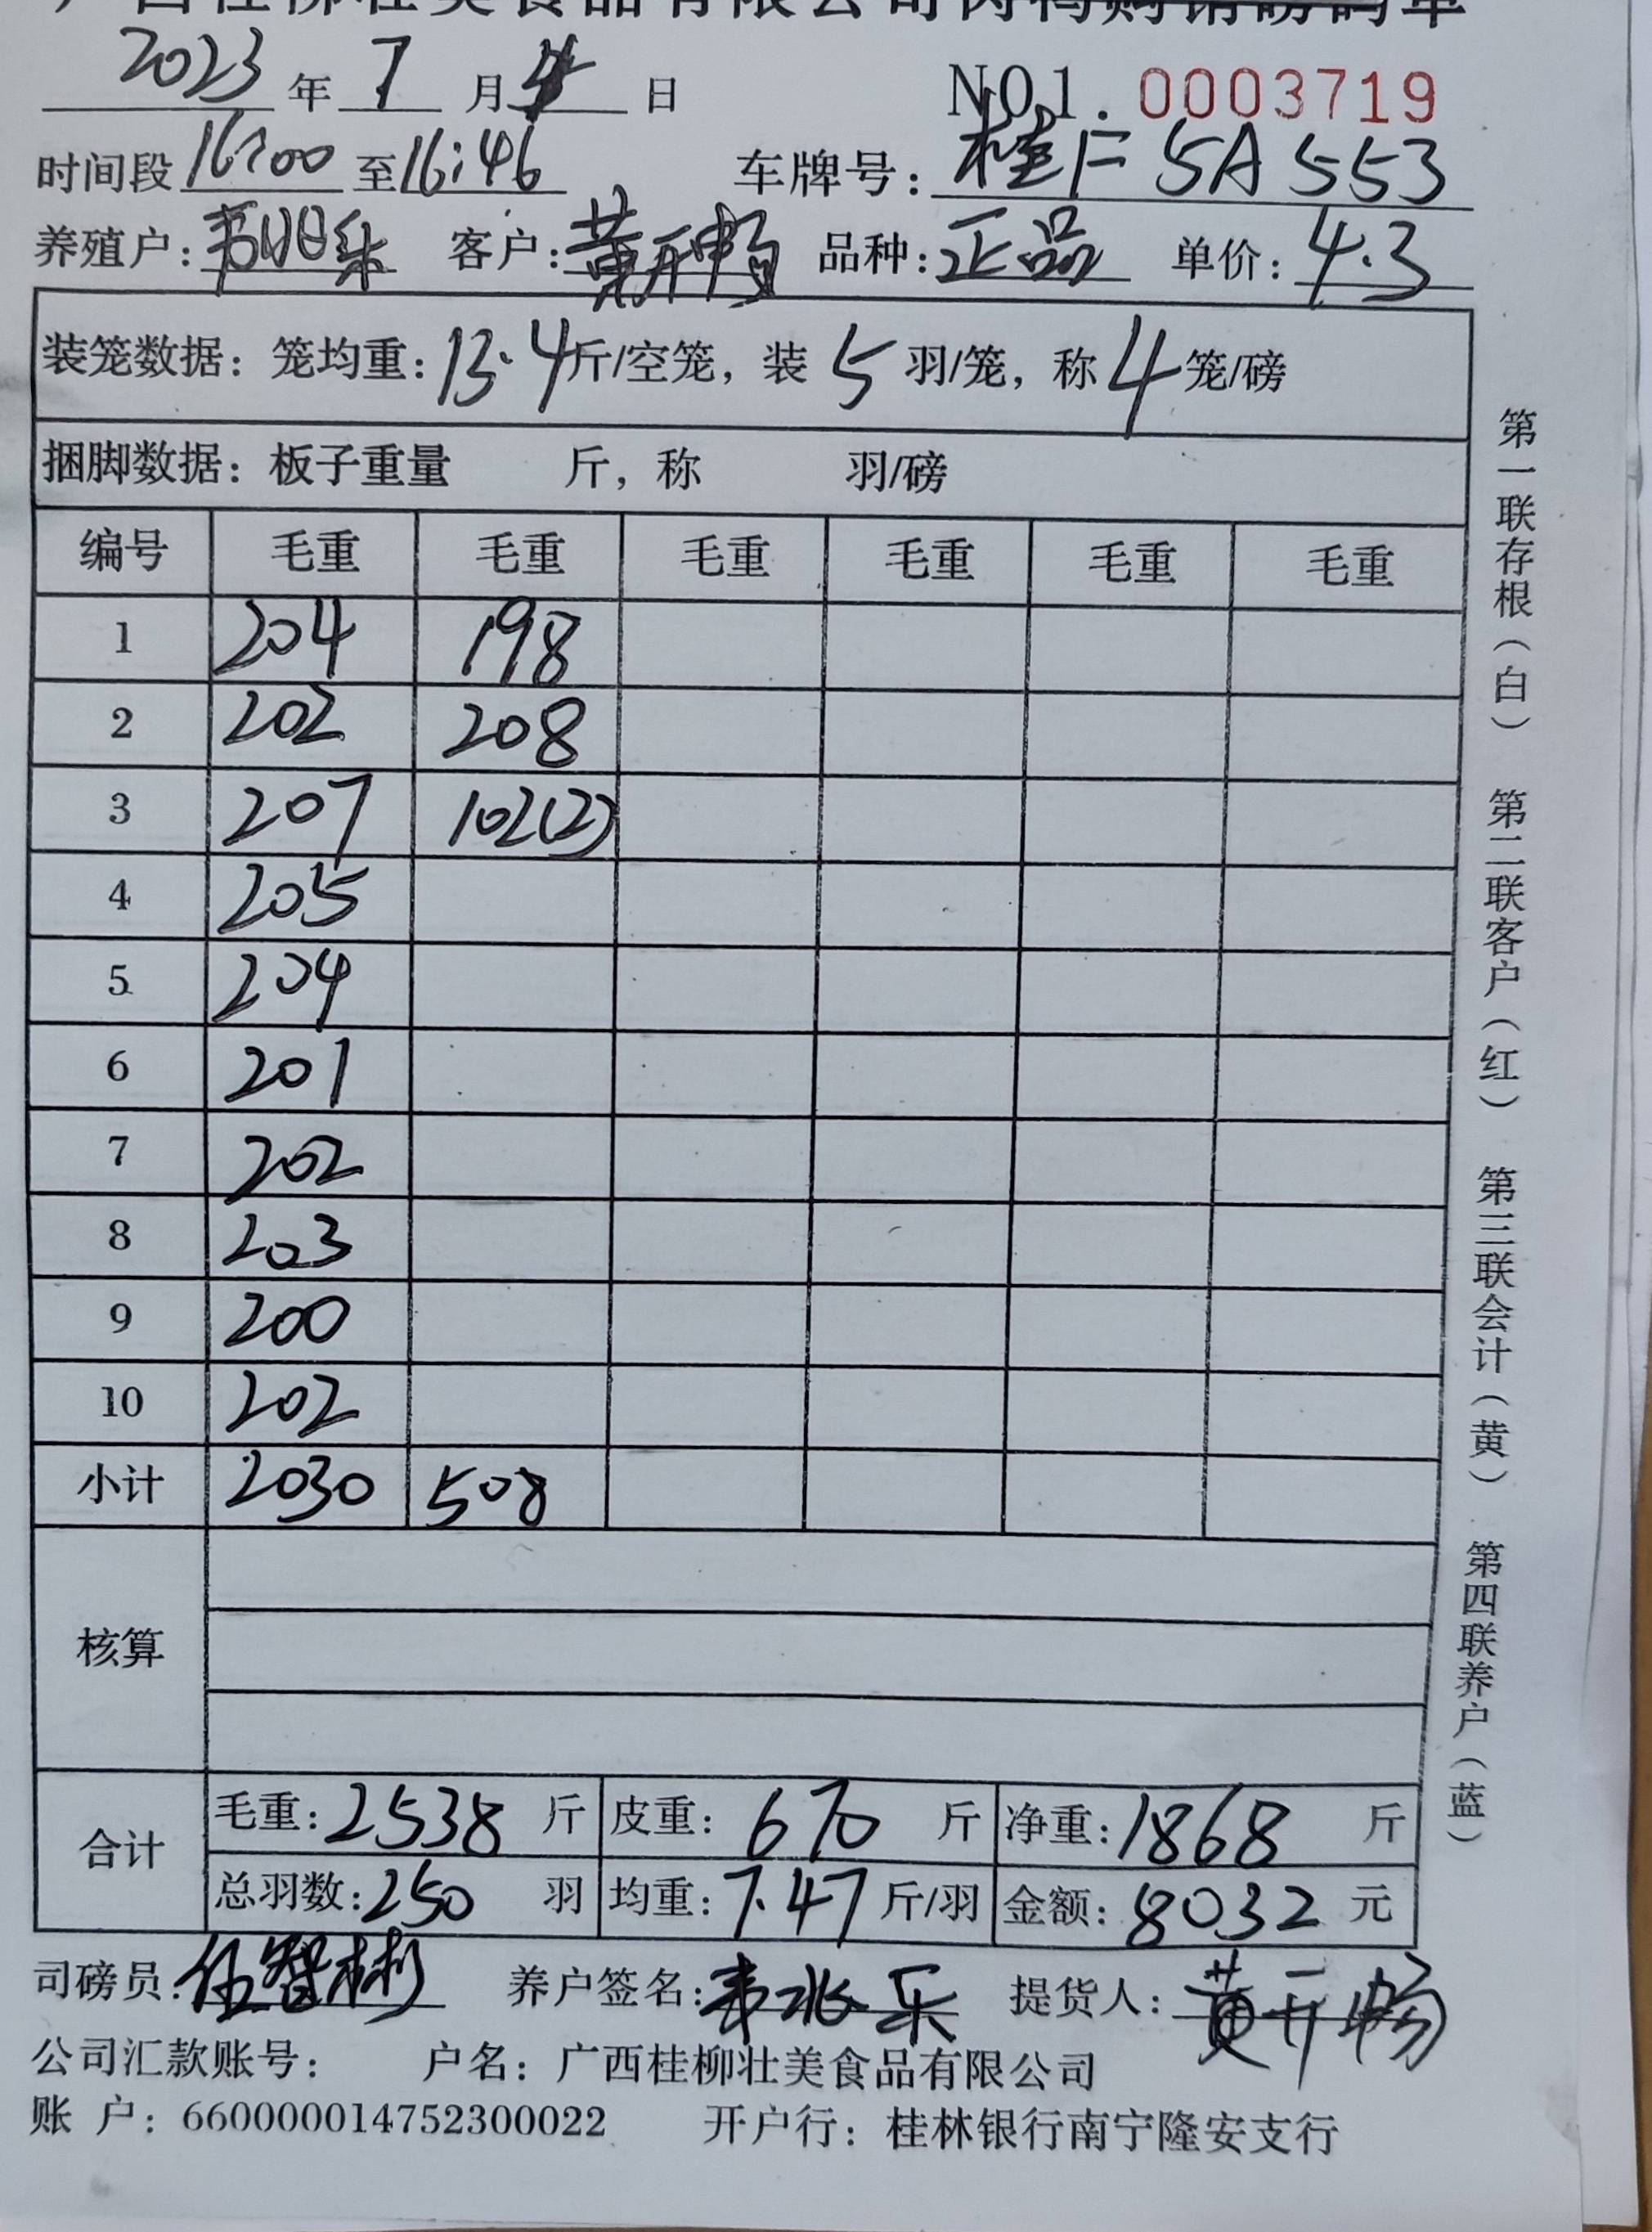 广西桂柳壮美食品有限公司肉鸭购销磅码单
2023年7月4日 NO1.0003719
时间段16:00至16:46 车牌号:桂F5A553
养殖户: 客户:黄开畅 品种:正品 单价:4.3
装笼数据:笼均重:13.4斤/空笼,装5羽/笼,称4笼/磅
捆脚数据:板子重量 斤,称 羽/磅
编号 毛重 毛重 毛重 毛重 毛重 毛重
1 204 198
2 202 208
3 207 102(2)
4 205
5 204
6 201
7 202
8 203
9 200
10 202
小计 2030 508
核算
合计 毛重:2538斤 皮重:670斤 净重:1868斤
总羽数:250羽 均重:7.47斤/羽 金额:8032元
司磅员:伍智彬 养户签名:韦 乐 提货人:黄开畅
公司汇款账号: 户名:广西桂柳壮美食品有限公司
账 户:660000014752300022 开户行:桂林银行南宁隆安支行
第一联存根(白) 第二联客户(红) 第三联会计(黄) 第四联养户(蓝)